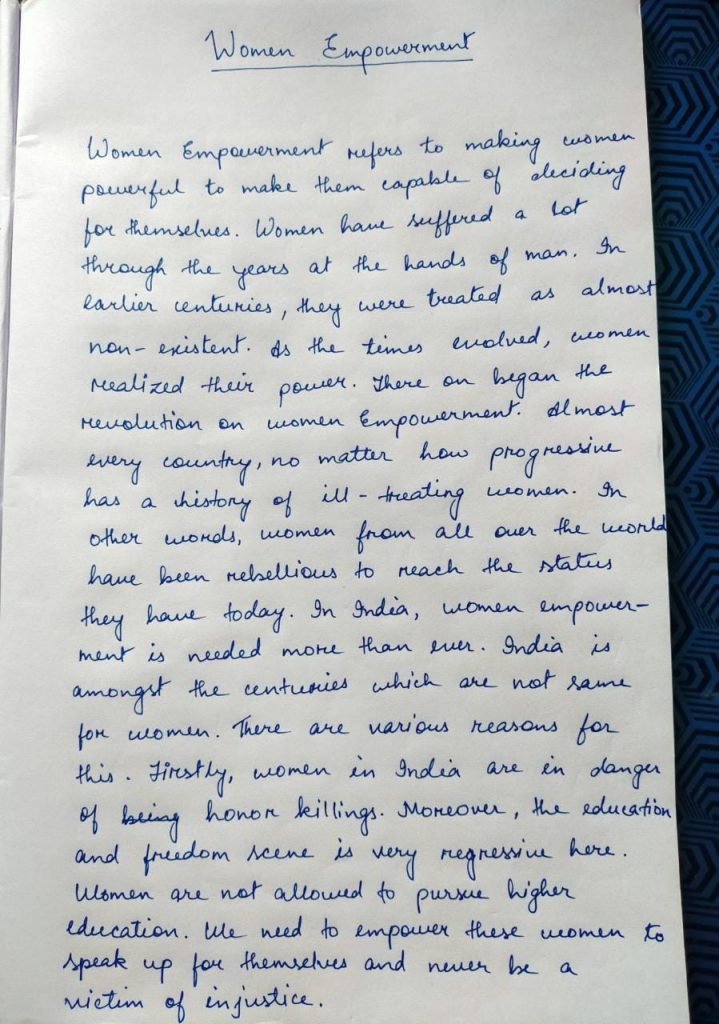 Women Empowerment
Women Empowerment refers to making women
powerful to make them capable of deciding
for themselves. Women have suffered a lot
through the years at the hands of man. In
earlier centuries, they were treated as almost
non-existent. As the times evolved, women
realized their power. There on began the
revolution on women Empowerment. Almost
every country, no matter how progressive
has a history of ill-treating women. In
other words, women from all over the world
have been rebellious to reach the status
they have today. In India, women empower-
ment is needed more than ever. India is
amongst the centuries which are not same
for women. There are various reasons for
this. Firstly, women in India are in danger
of being honor killings. Moreover, the education
and freedom scene is very regressive here.
Women are not allowed to pursue higher
education. We need to empower these women to
speak up for themselves and never be a
victim of injustice.